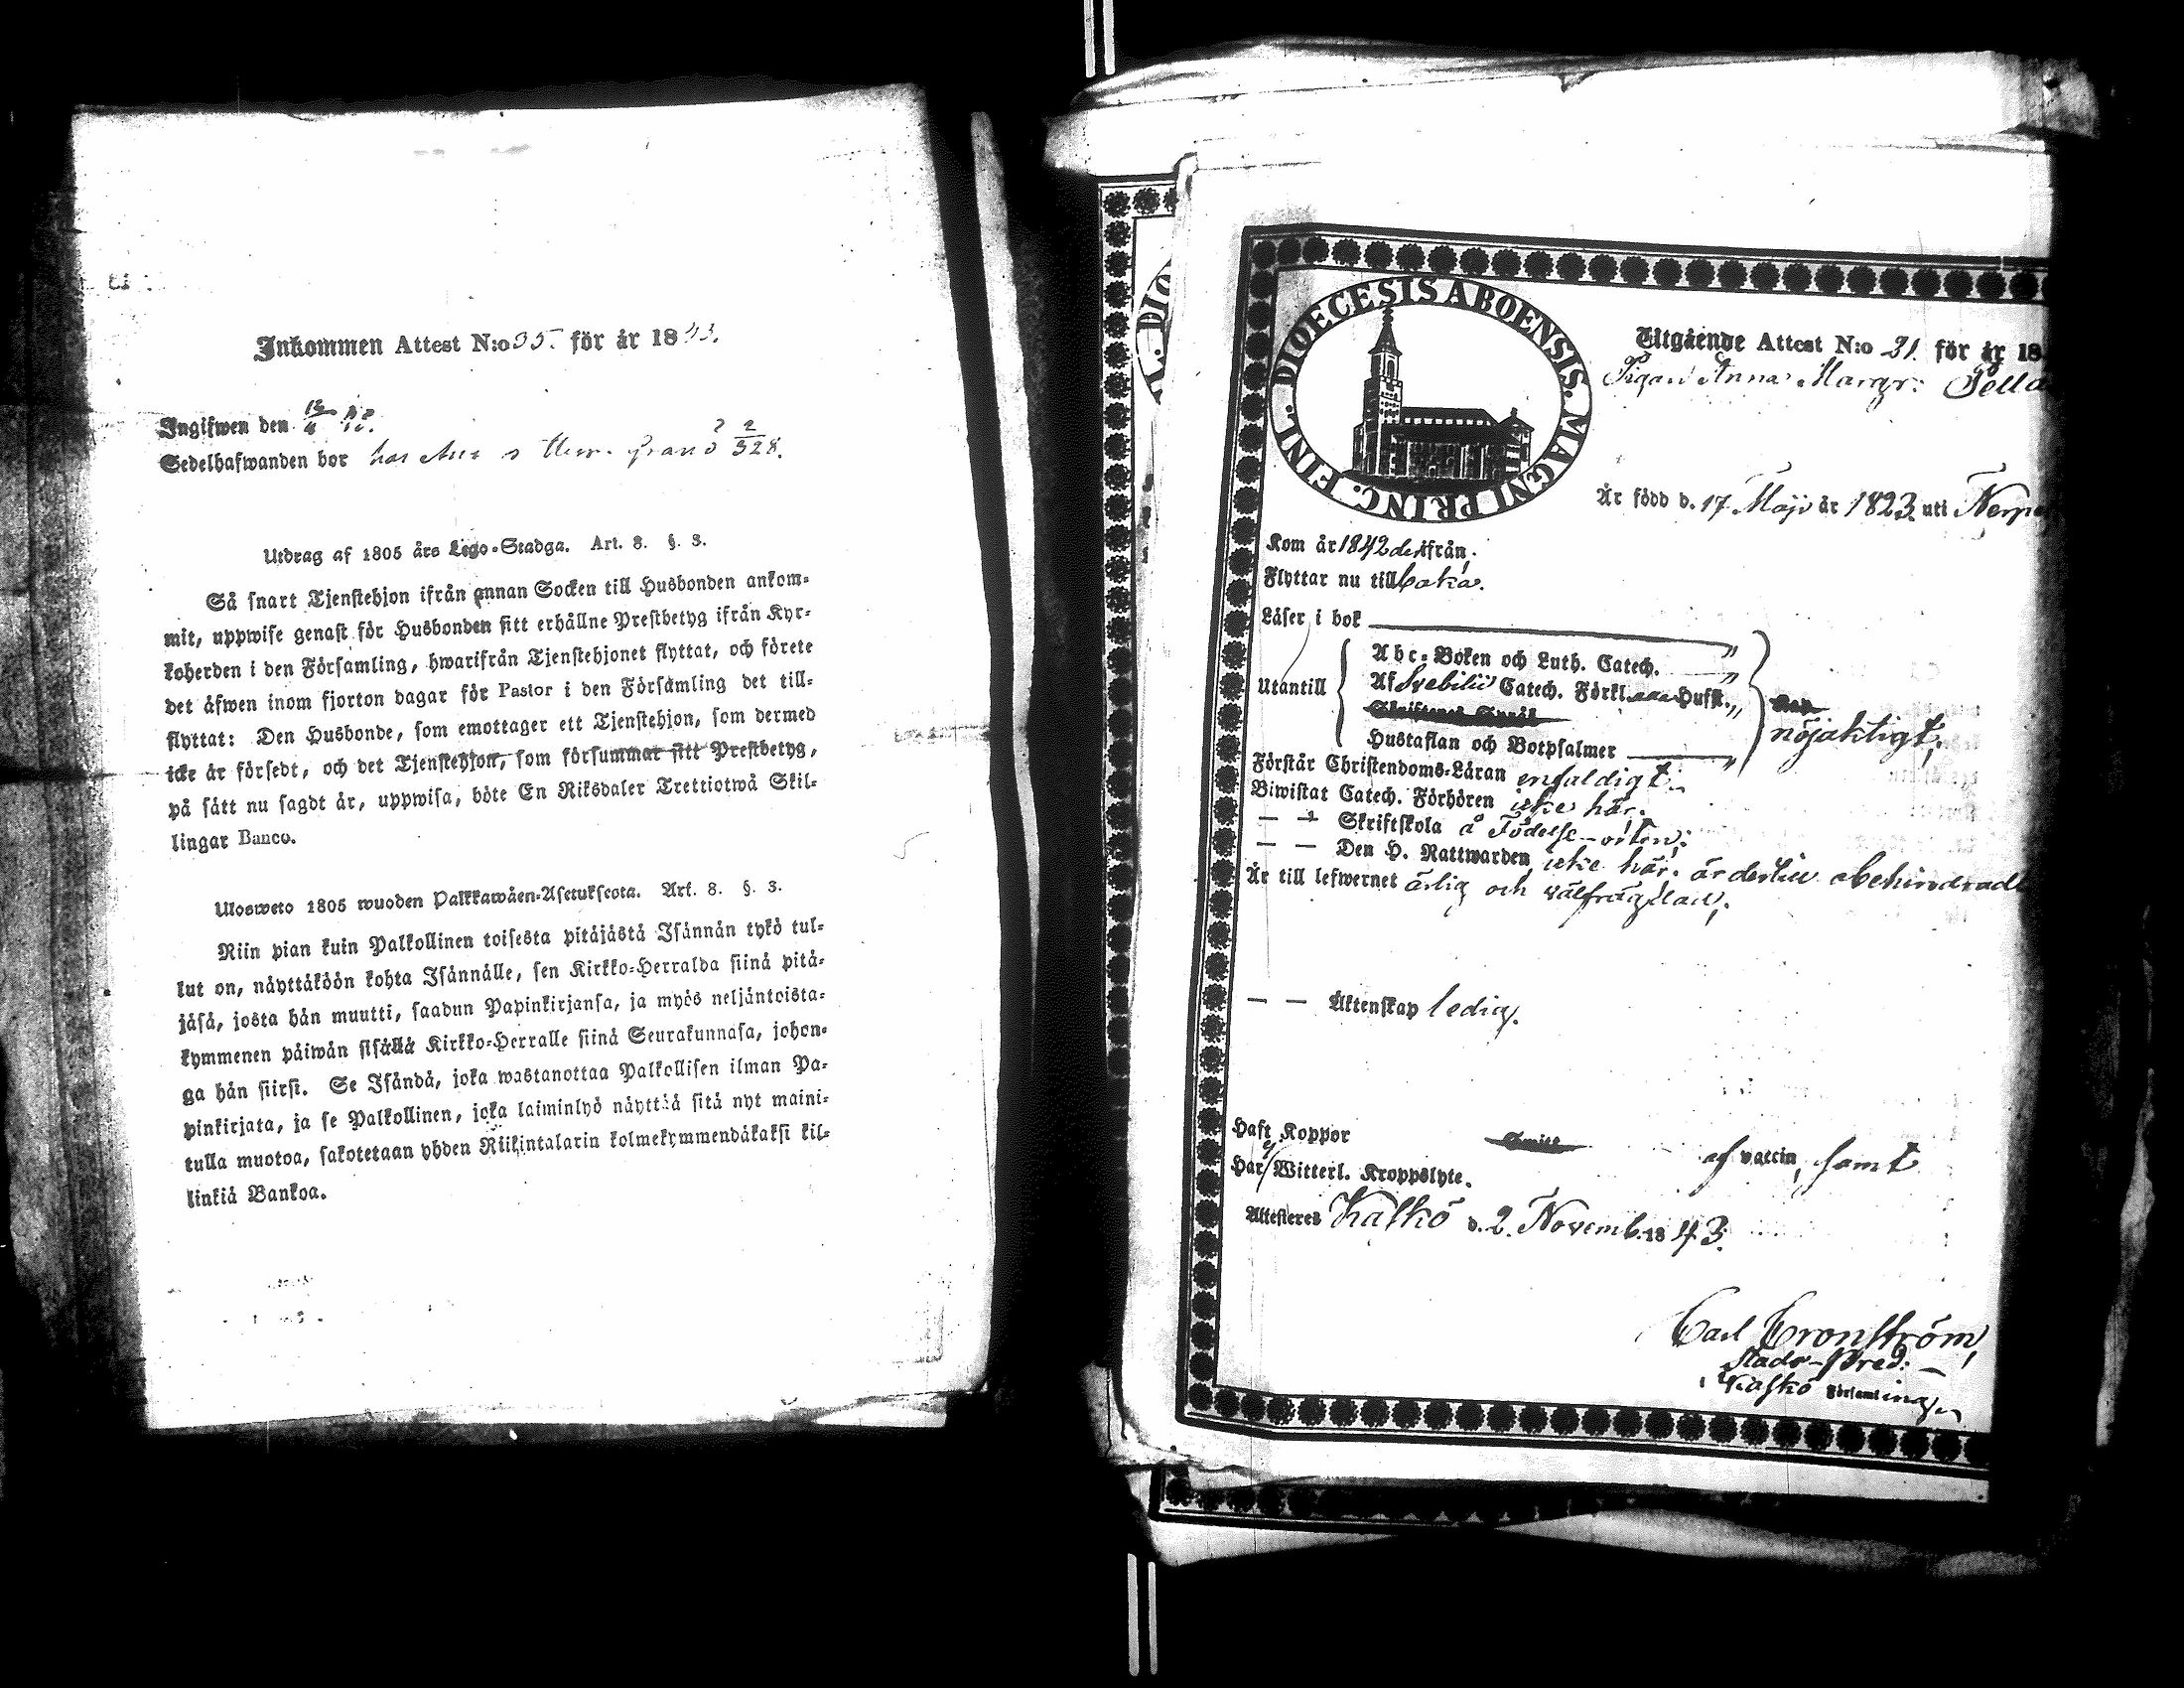 Inkommen Attest N:o 35. för år 1843.
Ingifwen den
Sedelhafwanden bor hos
Utdrag af 1805 års Lego-Stadga. Art. 8. §. 3.
Så snart Tjenstehjon ifrån annan Socken till Husbonden ankom-
mit, uppwise genast för Husbonden sitt erhållne Prestbetyg ifrån Kyr-
koherden i den Församling, hwarifrån Tjenstehjonet flyttat, och förete
det åfwen inom fjorton dagar för Pastor i den Församling det till-
flyttat: Den Husbonde, som emottager ett Tjenstehjon, som dermed
icke är försedt, och det Tjenstehjon, som försummar sitt Prestbetyg,
på sätt nu sagdt är, uppwisa, böte En Riksdaler Trettiotwå Skil-
lingar Banco.
Ulosweto 1805 wuoden Palkkawäen-Asetuksesta. Art. 8. §. 3.
Niin pian kuin Palkollinen toisesta pitäjästä Isännän tykö tul-
lut on, näyttäköön kohta Isännälle, sen Kirkko-Herralda siinä pitä-
jäsä, josta hän muutti, saadun Papinkirjansa, ja myös neljäntoista-
kymmenen päiwän sisällä Kirkko-Herralle siinä Seurakunnasa, johon-
ga hän siirsi. Se Isändä, joka wastanottaa Palkollisen ilman Pa-
pinkirjata, ja se Palkollinen, joka laiminlyö näyttää sitä nyt maini-
tulla muotoa, sakotetaan yhden Riikintalarin kolmekymmendäkaksi kil-
linkiä Bankoa.
DIOECESIS ABOENSIS. MAGNI PRINC. FINL.
Utgående Attest N:o 31. för år 18
Pigan Anna Margr:
År född d. 17 Maji år 1823. uti
Kom år 1842 der ifrån.
Flyttar nu till baka.
Läser i bok
Abc-Boken och Luth. Catech. "
Utantill Af Svebilii Catech. Förkl. Hufst. "
Skriftenes Språk
Hustaflan och Botpsalmer "
nöjaktigt.
Förstår Christendoms-Läran enfaldigt.
Biwistat Catech. Förhören icke här.
— — Skriftskola å Födelse-orten.
— — Den H. Nattwarden icke här. är dertill obehindrad
Är till lefwernet ärlig och välfrägdad.
— — Äktenskap ledig.
Haft Koppor af vaccin, samt
Har ej Witterl. Kroppslyte.
Attesteres Kaskö d. 2. Novemb. 1843.
Carl Cronström
Stads-Pred.
Kaskö Församling